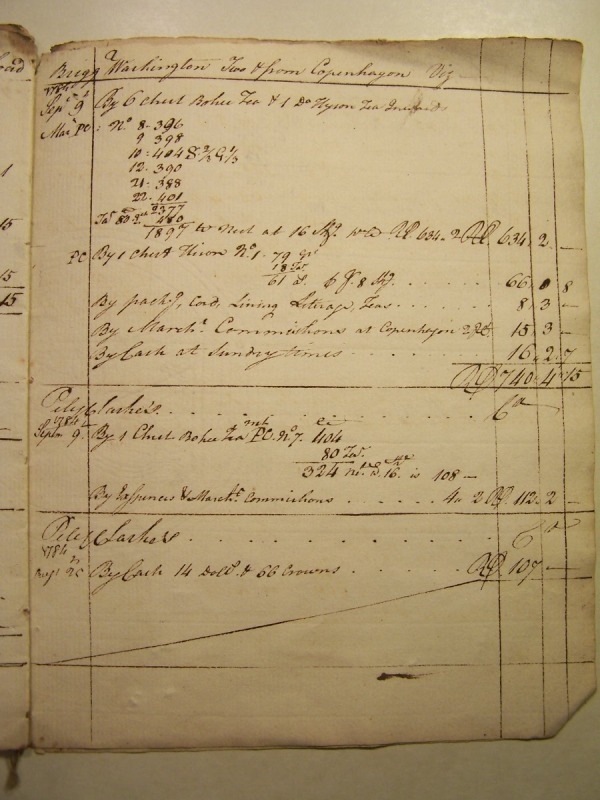 Brigg Washington Too & from Copenhagen Viz
1784
Sepr 9th By 6 Chest Bohea Tea & 1 Do Hyson Tea
Mar: PC: No 8-396
9 398
10-404
12-390
21-388
22-401
2377
480
1897 Neet at 16 RD 634.2 RD 634 2 —
PC By 1 Chest Hison No 1- 79
18 Tar
61 8 66 0 8
By packg, Cord, Lining Literage, Teas . . . . 8 3 —
By Marcht Commissions at Copenhagen 15 3 —
By Cash at Sundry times . . . . . 16 2 7
RD 740 4 15
Peleg Clarke's . . . . . . . . Cr
1784
Septm 9 By 1 Chest Bohea Tea PC. No 7. 404
80 Tar
324 is 16 is 108 —
By Expences & Marcht Commissions . . . . . 4 2 RD 112 2 —
Peleg Clarke's . . . . . . . . Cr
1784
Augt 25 By Cash 14 Dolls & 66 Crowns . . . . . RD 107 —
15
15
15